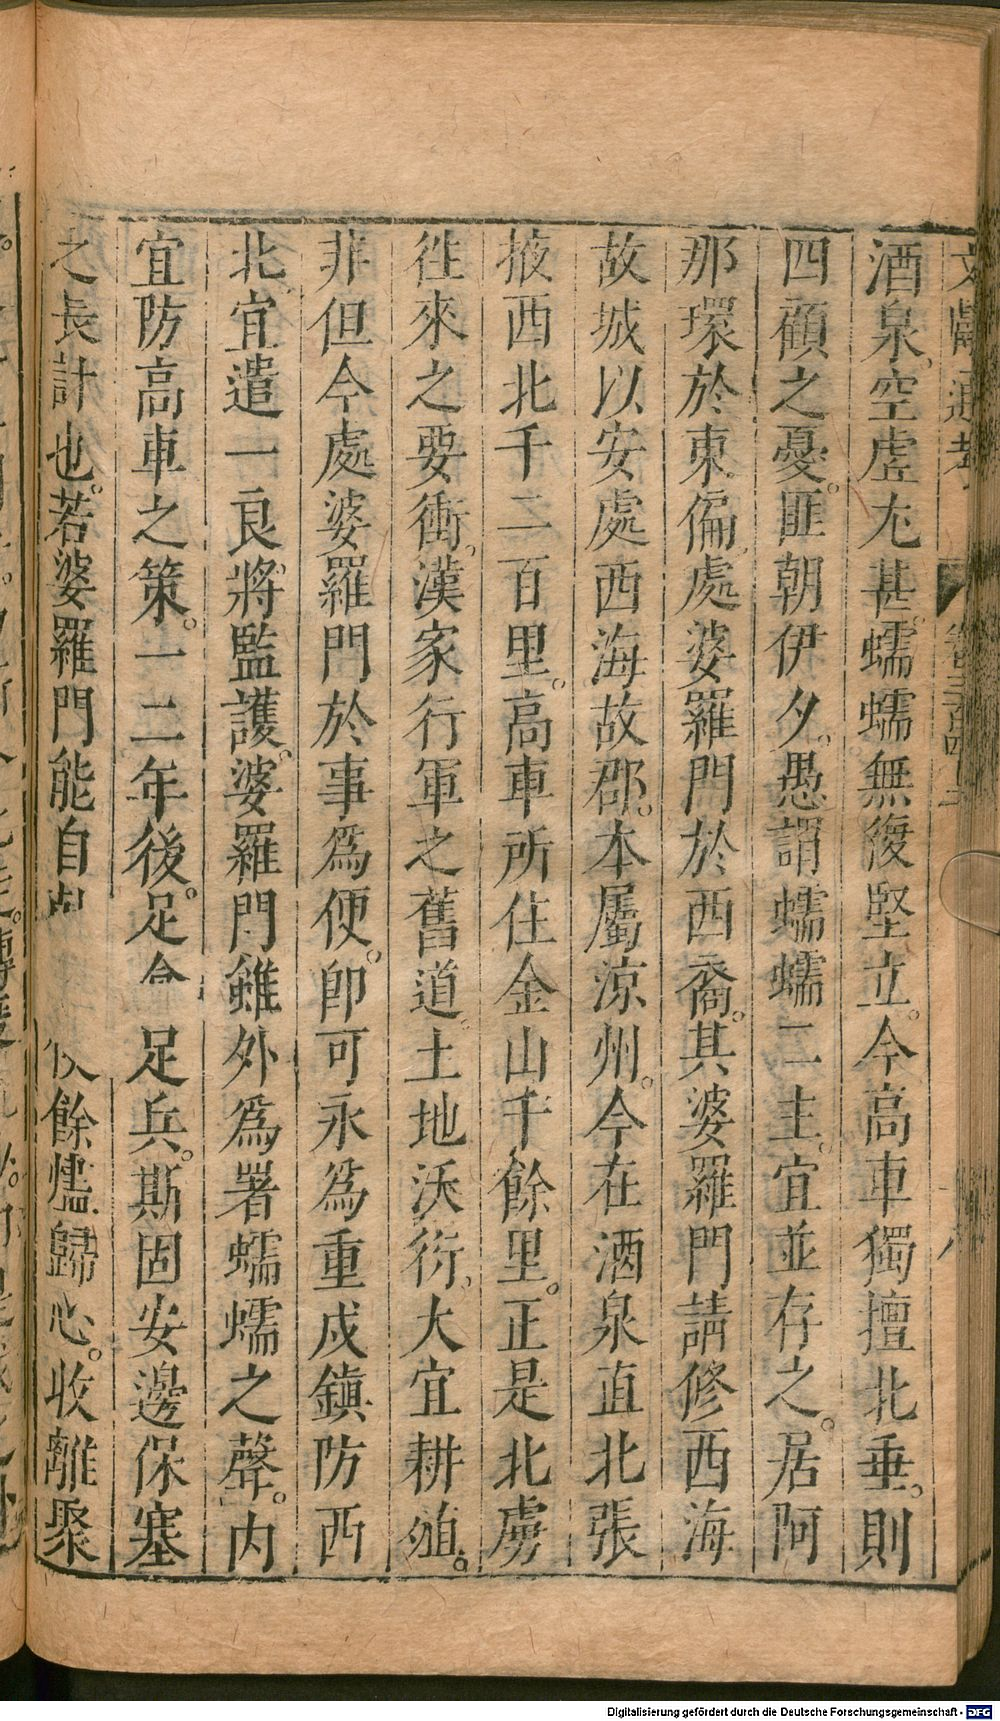 文獻通考
卷三百四十二
酒泉空虛尤甚蠕蠕無復堅立。今高車獨擅北垂。則
四顧之憂。匪朝伊夕。愚謂蠕蠕二主。宜並存之。居阿
那瓌於東偏處婆羅門於西裔。其婆羅門請修西海
故城以安處西海故郡。本屬涼州。今在酒泉直北張
掖西北千二百里。高車所住金山千餘里。正是北虜
徃來之要衝。漢家行軍之舊道。土地沃衍。大宜耕殖。
非但今處婆羅門於事爲便。卽可永爲重戍鎮防西
北宜遣一良將監護。婆羅門雖外爲署蠕蠕之聲。内
宜防高車之策。一二年後。足食足兵。斯固安邊保塞
之長計也。若婆羅門能自 餘燼歸心。收離聚
Digitalisierung gefördert durch die Deutsche Forschungsgemeinschaft - DFG